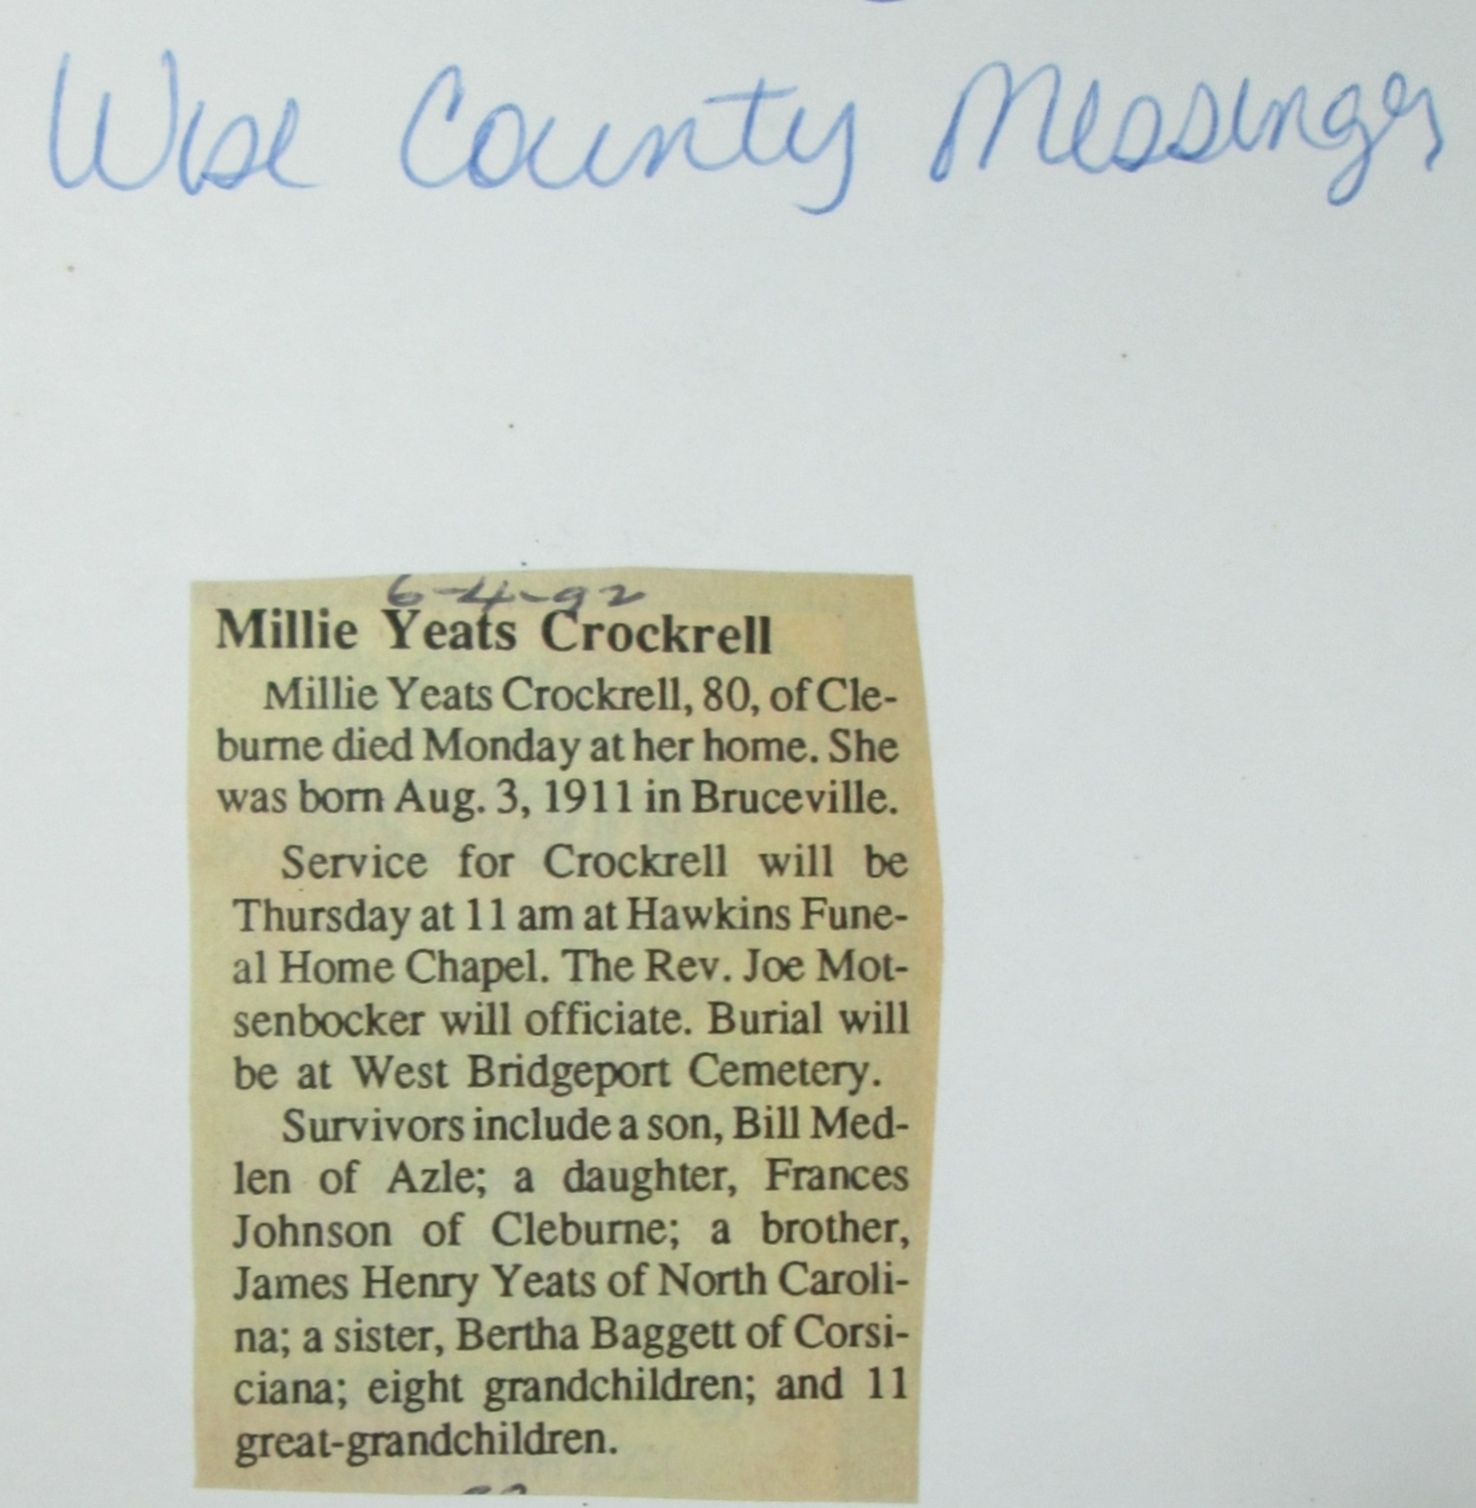 Wise County Messenger
6-4-92
Millie Yeats Crockrell
Millie Yeats Crockrell, 80, of Cle-
burne died Monday at her home. She
was born Aug. 3, 1911 in Bruceville.
Service for Crockrell will be
Thursday at 11 am at Hawkins Fune-
al Home Chapel. The Rev. Joe Mot-
senbocker will officiate. Burial will
be at West Bridgeport Cemetery.
Survivors include a son, Bill Med-
len of Azle; a daughter, Frances
Johnson of Cleburne; a brother,
James Henry Yeats of North Caroli-
na; a sister, Bertha Baggett of Corsi-
ciana; eight grandchildren; and 11
great-grandchildren.